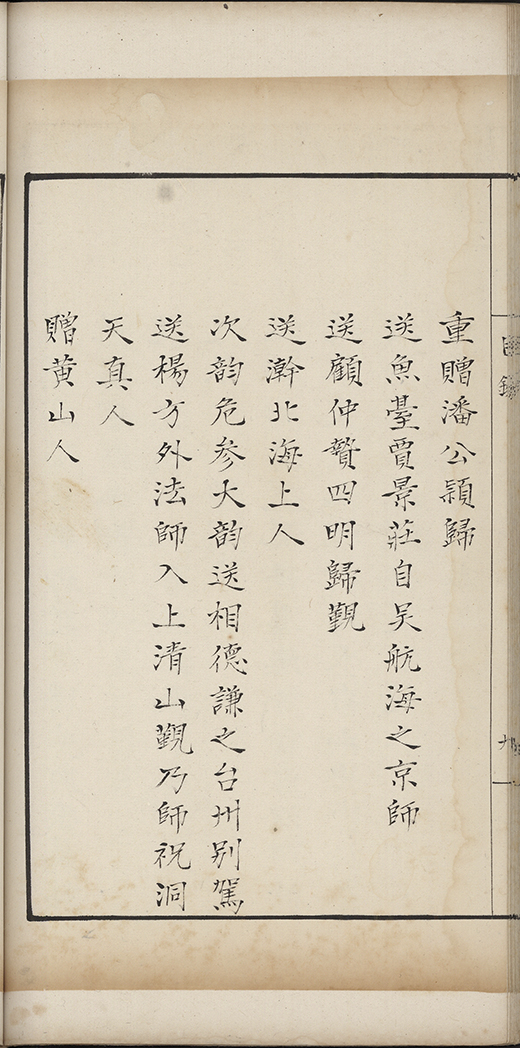 重贈潘公穎歸
送魚臺賈景莊自吳航海之京師
送顧仲贄四明歸觀
送澣北海上人
次韵危參大韵送相德謙之台州别駕
送楊方外法師入上清山觀乃師祝洞
天真人
贈黄山人